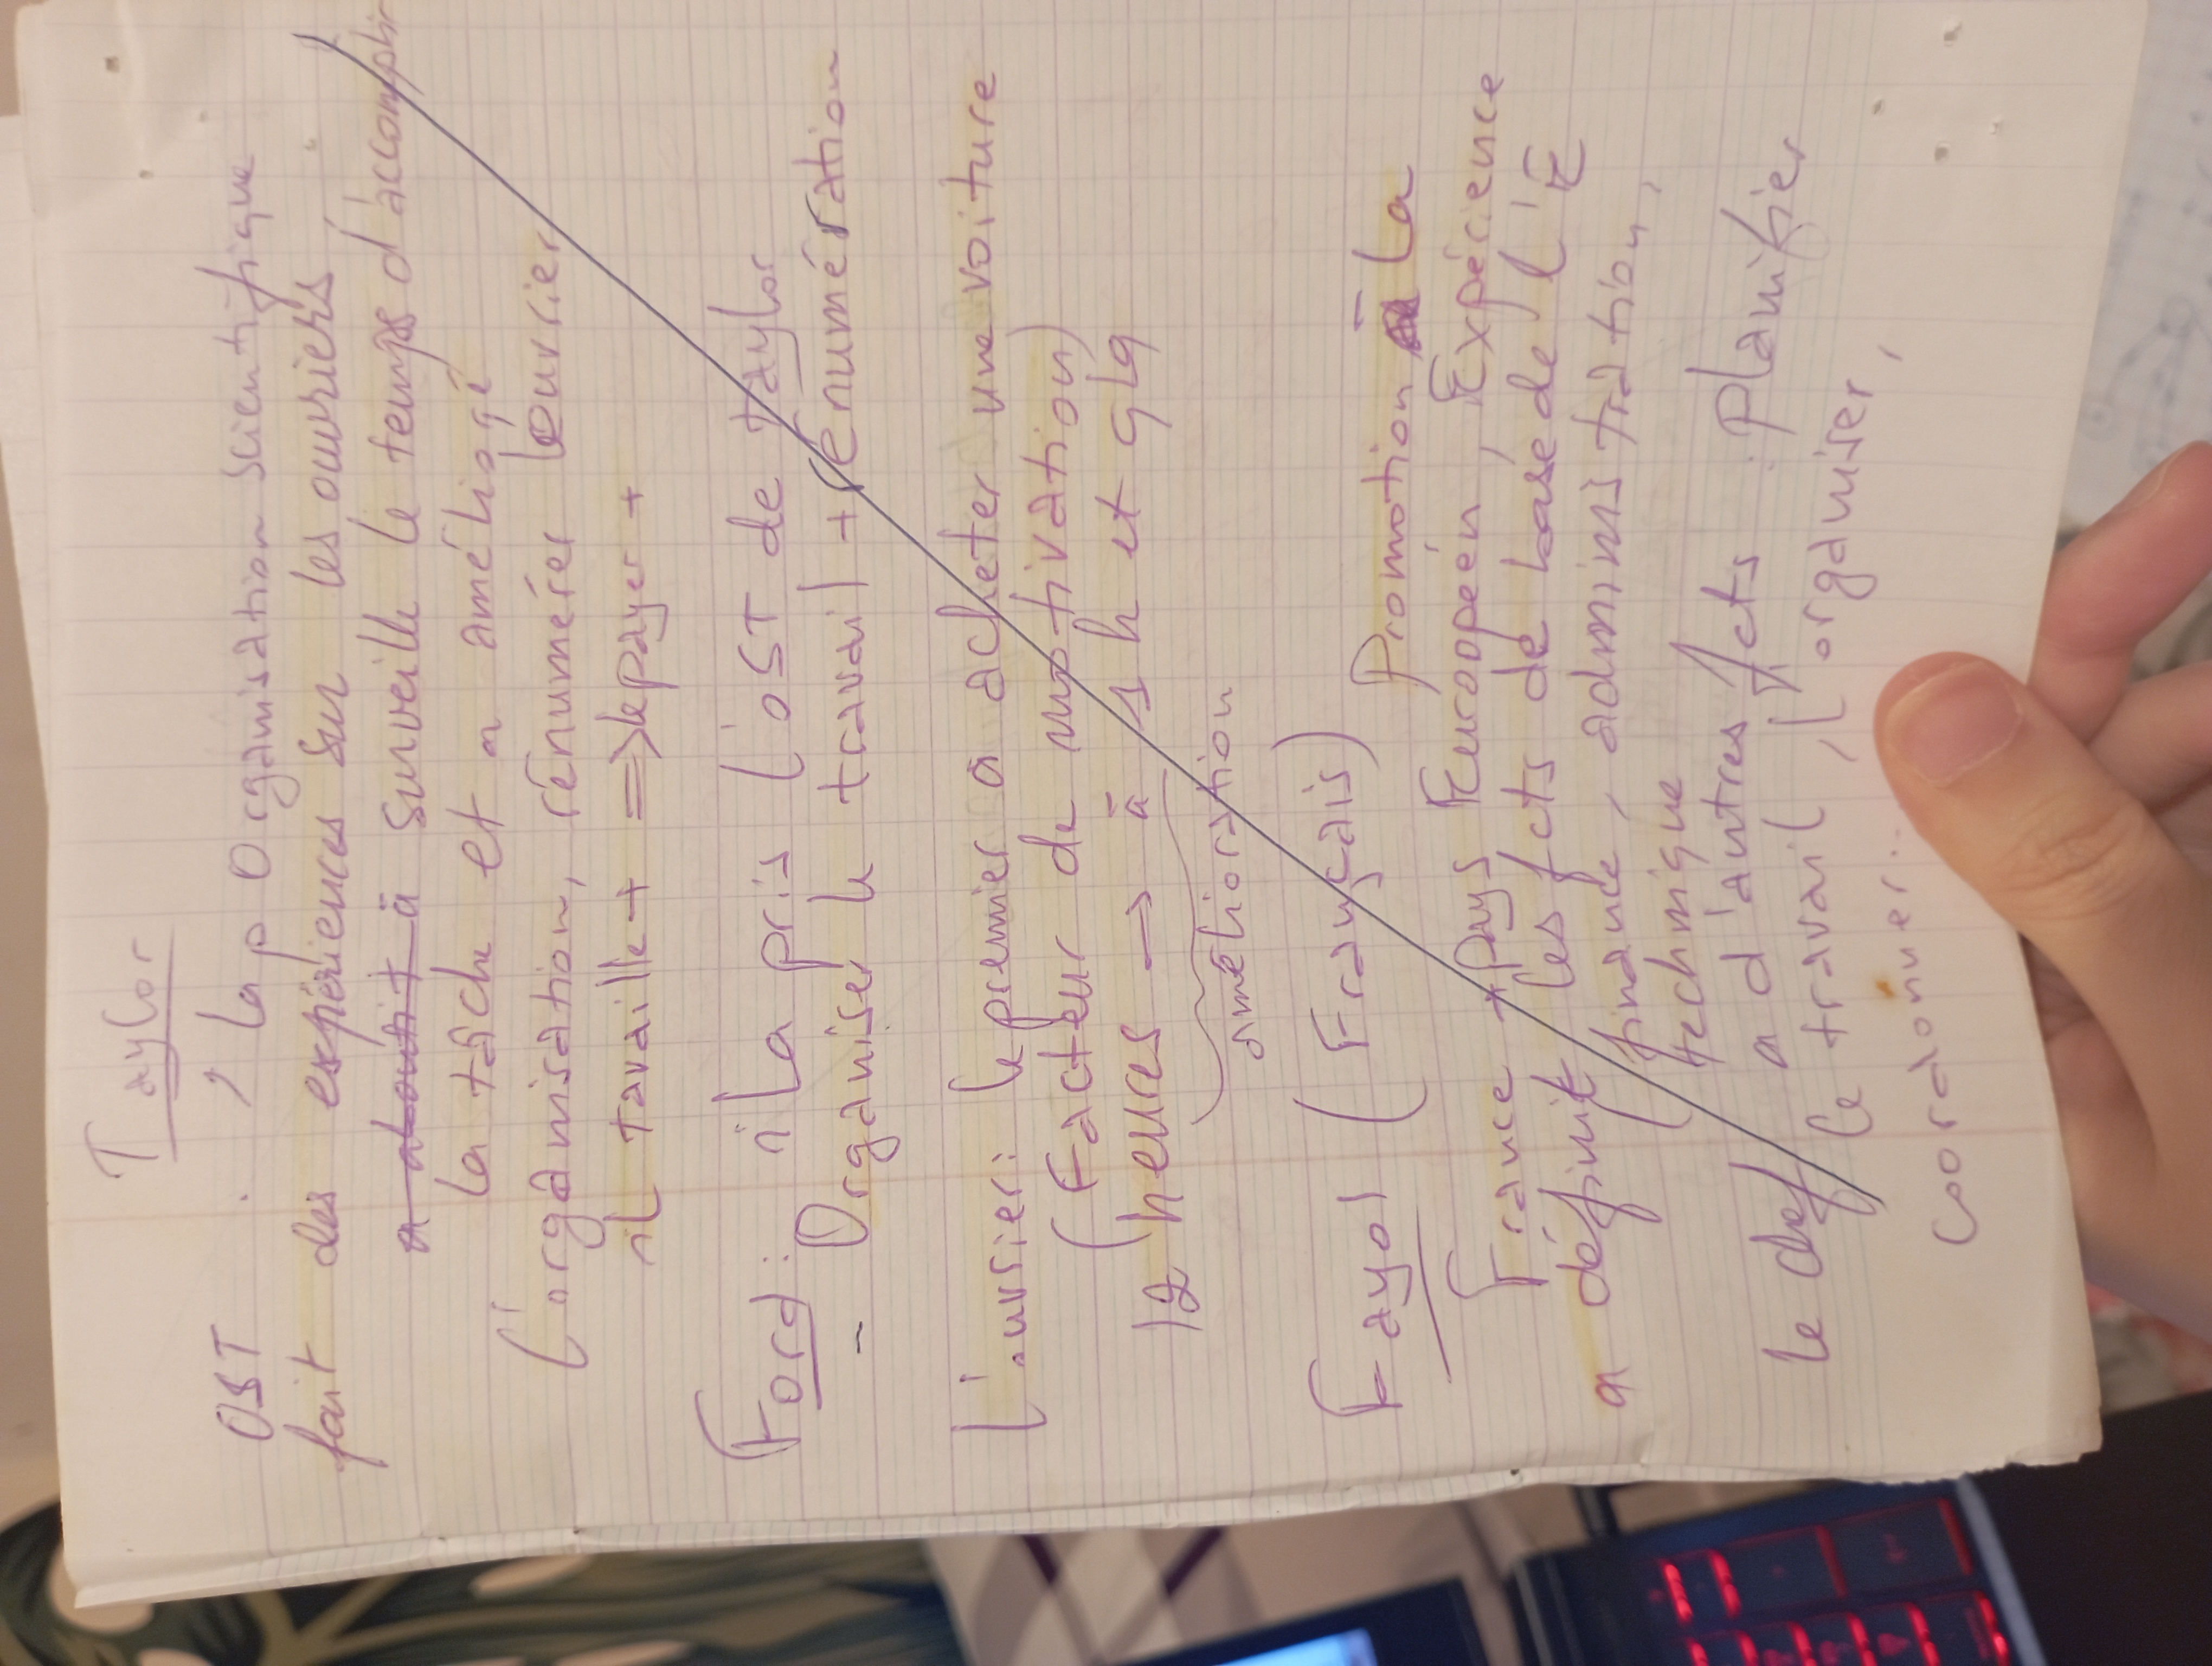 Taylor
OST : la p Organisation scientifique
fait des expériences sur les ouvriers,
a aboutit à surveille le temps d'accomplir
la tâche et a amélioré
l'organisation, rénumérer l'ouvrier
il tavaille + => le payer +
Ford : il a pris l'OST de taylor
- Organiser le travail + rénumération
l'ouvrier : le premier à acheter une voiture
(Facteur de motivation)
12 heures → à 1 h et qlq
amélioration
Fayol (Français)
Promotion à la
France → pays Européen, Expérience
a définit les fcts de base de l'E
(finance, administration,
technique
le chef a d'autres fcts : Planifier
le travail, l'organiser,
coordonner...